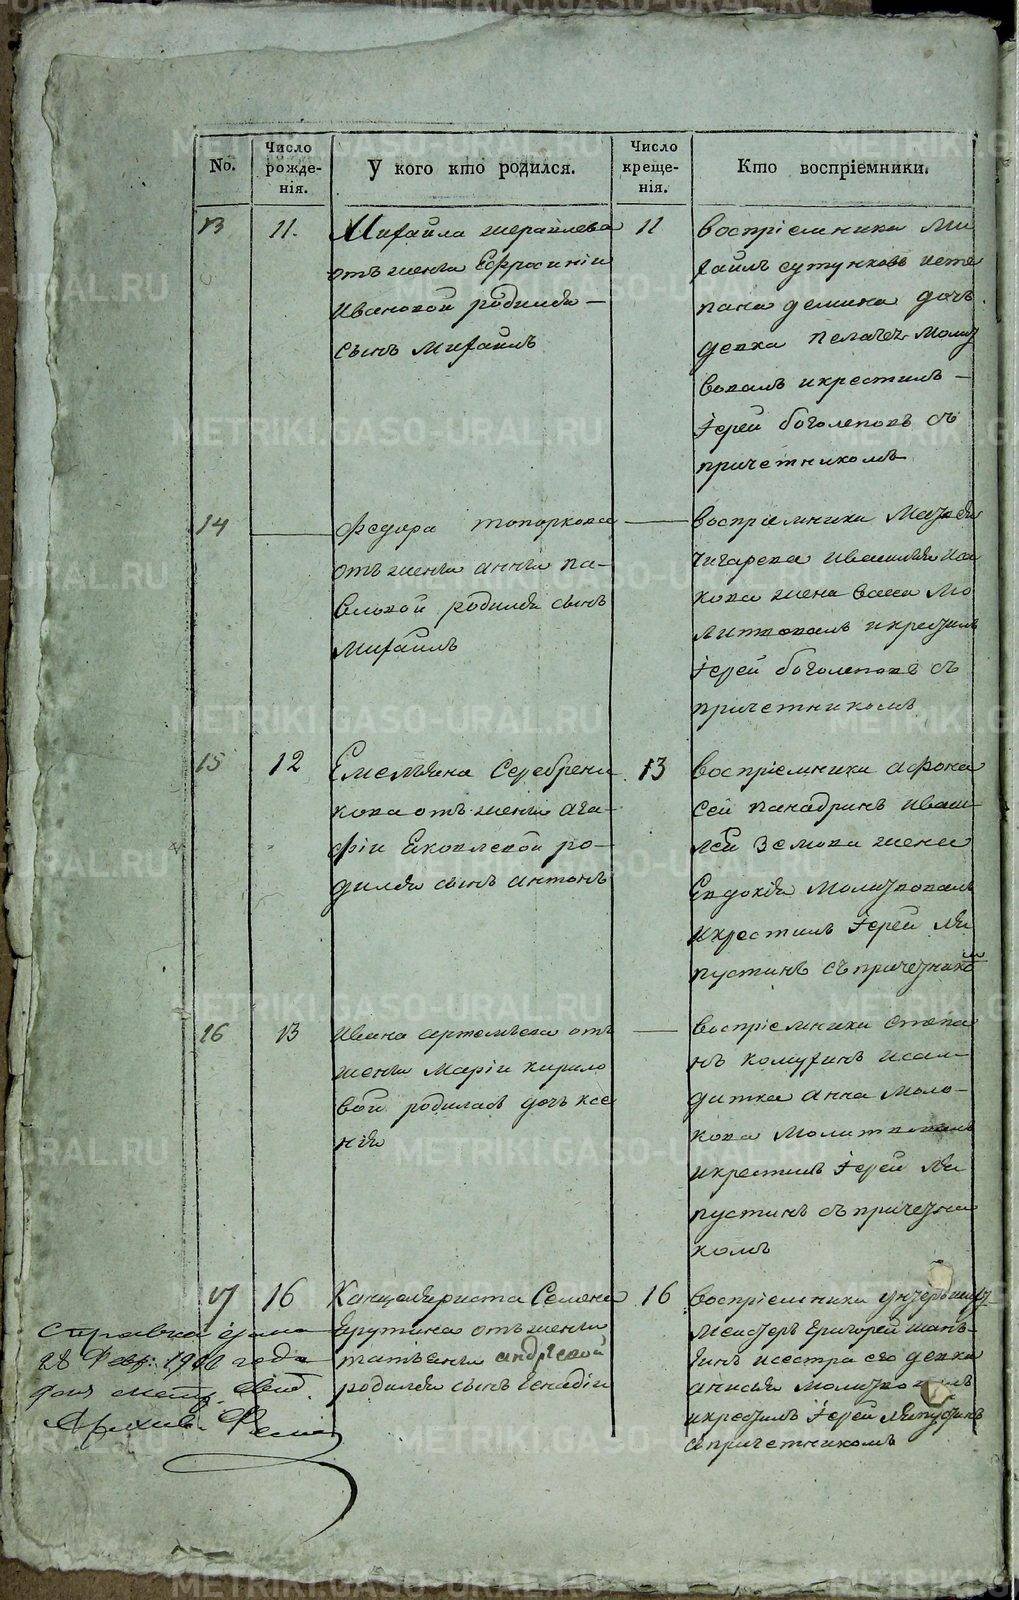 No.
Число рожде-
нія.
У кого кто родился.
Число креще-
нія.
Кто воспріемники.
13
11.
Михаила
отъ жены Ефросиніи
Ивановой родился —
сынъ Михаилъ
11
воспріемники Ми
хаилъ сутунковъ исте
пана демина дочь
девка пелагея Молит
вовалъ икрестилъ —
Іерей боголеповъ съ
причетникомъ
14
Федора топоркова
отъ жены анны па-
вловой родился сынъ
Михаилъ
воспріемники
ивасилья
кова жена Молитвовалъ икрестилъ
Іерей боголеповъ съ
причетникомъ
15
12
Емельяна Серебрени
кова отъ жены ага-
фіи Яковлевой ро-
дился сынъ антонъ
13
воспріемники афона
сей панадринъ иваси-
лей Зе жена
Евдокія Молитвовалъ
икрестилъ Іерей ля
пустинъ съ причетникомъ
16
13
Ивана артемьева отъ
жены Маріи кирило
вой родилась дочь ксе
нія
воспріемники степа
нъ исал-
датка анна Моло-
кова Молитвовалъ
икрестилъ Іерей ля
пустинъ съ причетни
комъ
17
16
Канцеляриста Семена
отъ жены
татьяны андреевой
родился сынъ генадіи
16
воспріемники унтеръ шихт
Мейстеръ Григорей шань-
гинъ исестра его девка
анисья Молитвовалъ
икрестилъ Іерей ляпустинъ
съ причетникомъ
Справка
28 Февр: года
METRIKI.GASO-URAL.RU